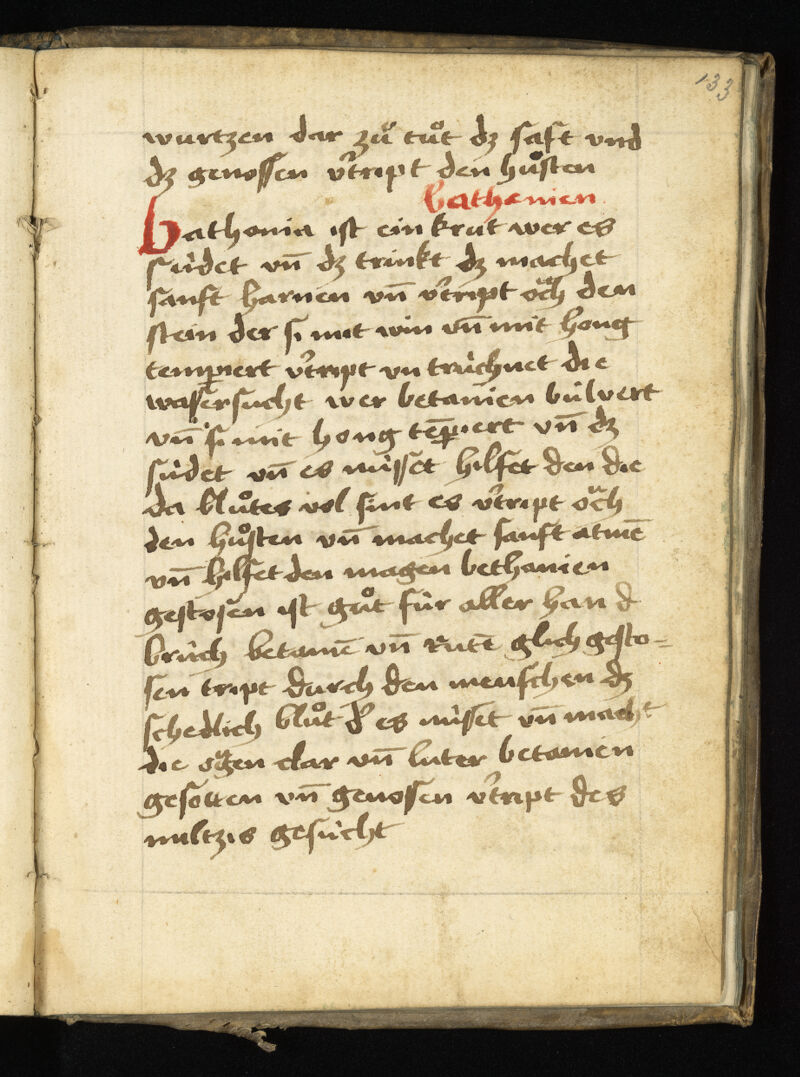 133
wurtzen dar zuͦ tuͦt dz saft vnd
dz genossen v̓tript den huͦsten
bathenien
bathonia ist ein krut wer es
sùdet vn̄ dz trinkt dz machet
sanft harnen vn̄ v̓tript oͧch den
stein der si mit win vn̄ mit hong
temperiert v̓tript vn trùchnet die
wassersucht wer betanien bùlvert
vn̄ si mit hong tēperiert vn̄ dz
sùdet vn̄ es nùsset hilfet den die
da bluͦtes vol sint es v̓tript oͧch
den huͦsten vn̄ machet sanft atmē
vn̄ hilfet den magen bethanien
gestosen ist guͦt fùr aller hand
brùch betaniē vn̄ Rutē glich gesto=
sen tript durch den menschen dz
schedlich bluͦt d̓ es nùsset vn̄ macht
die oͧgen clar vn̄ luter betanien
gesotten vn̄ genossen v̓tript des
miltzis gesùcht